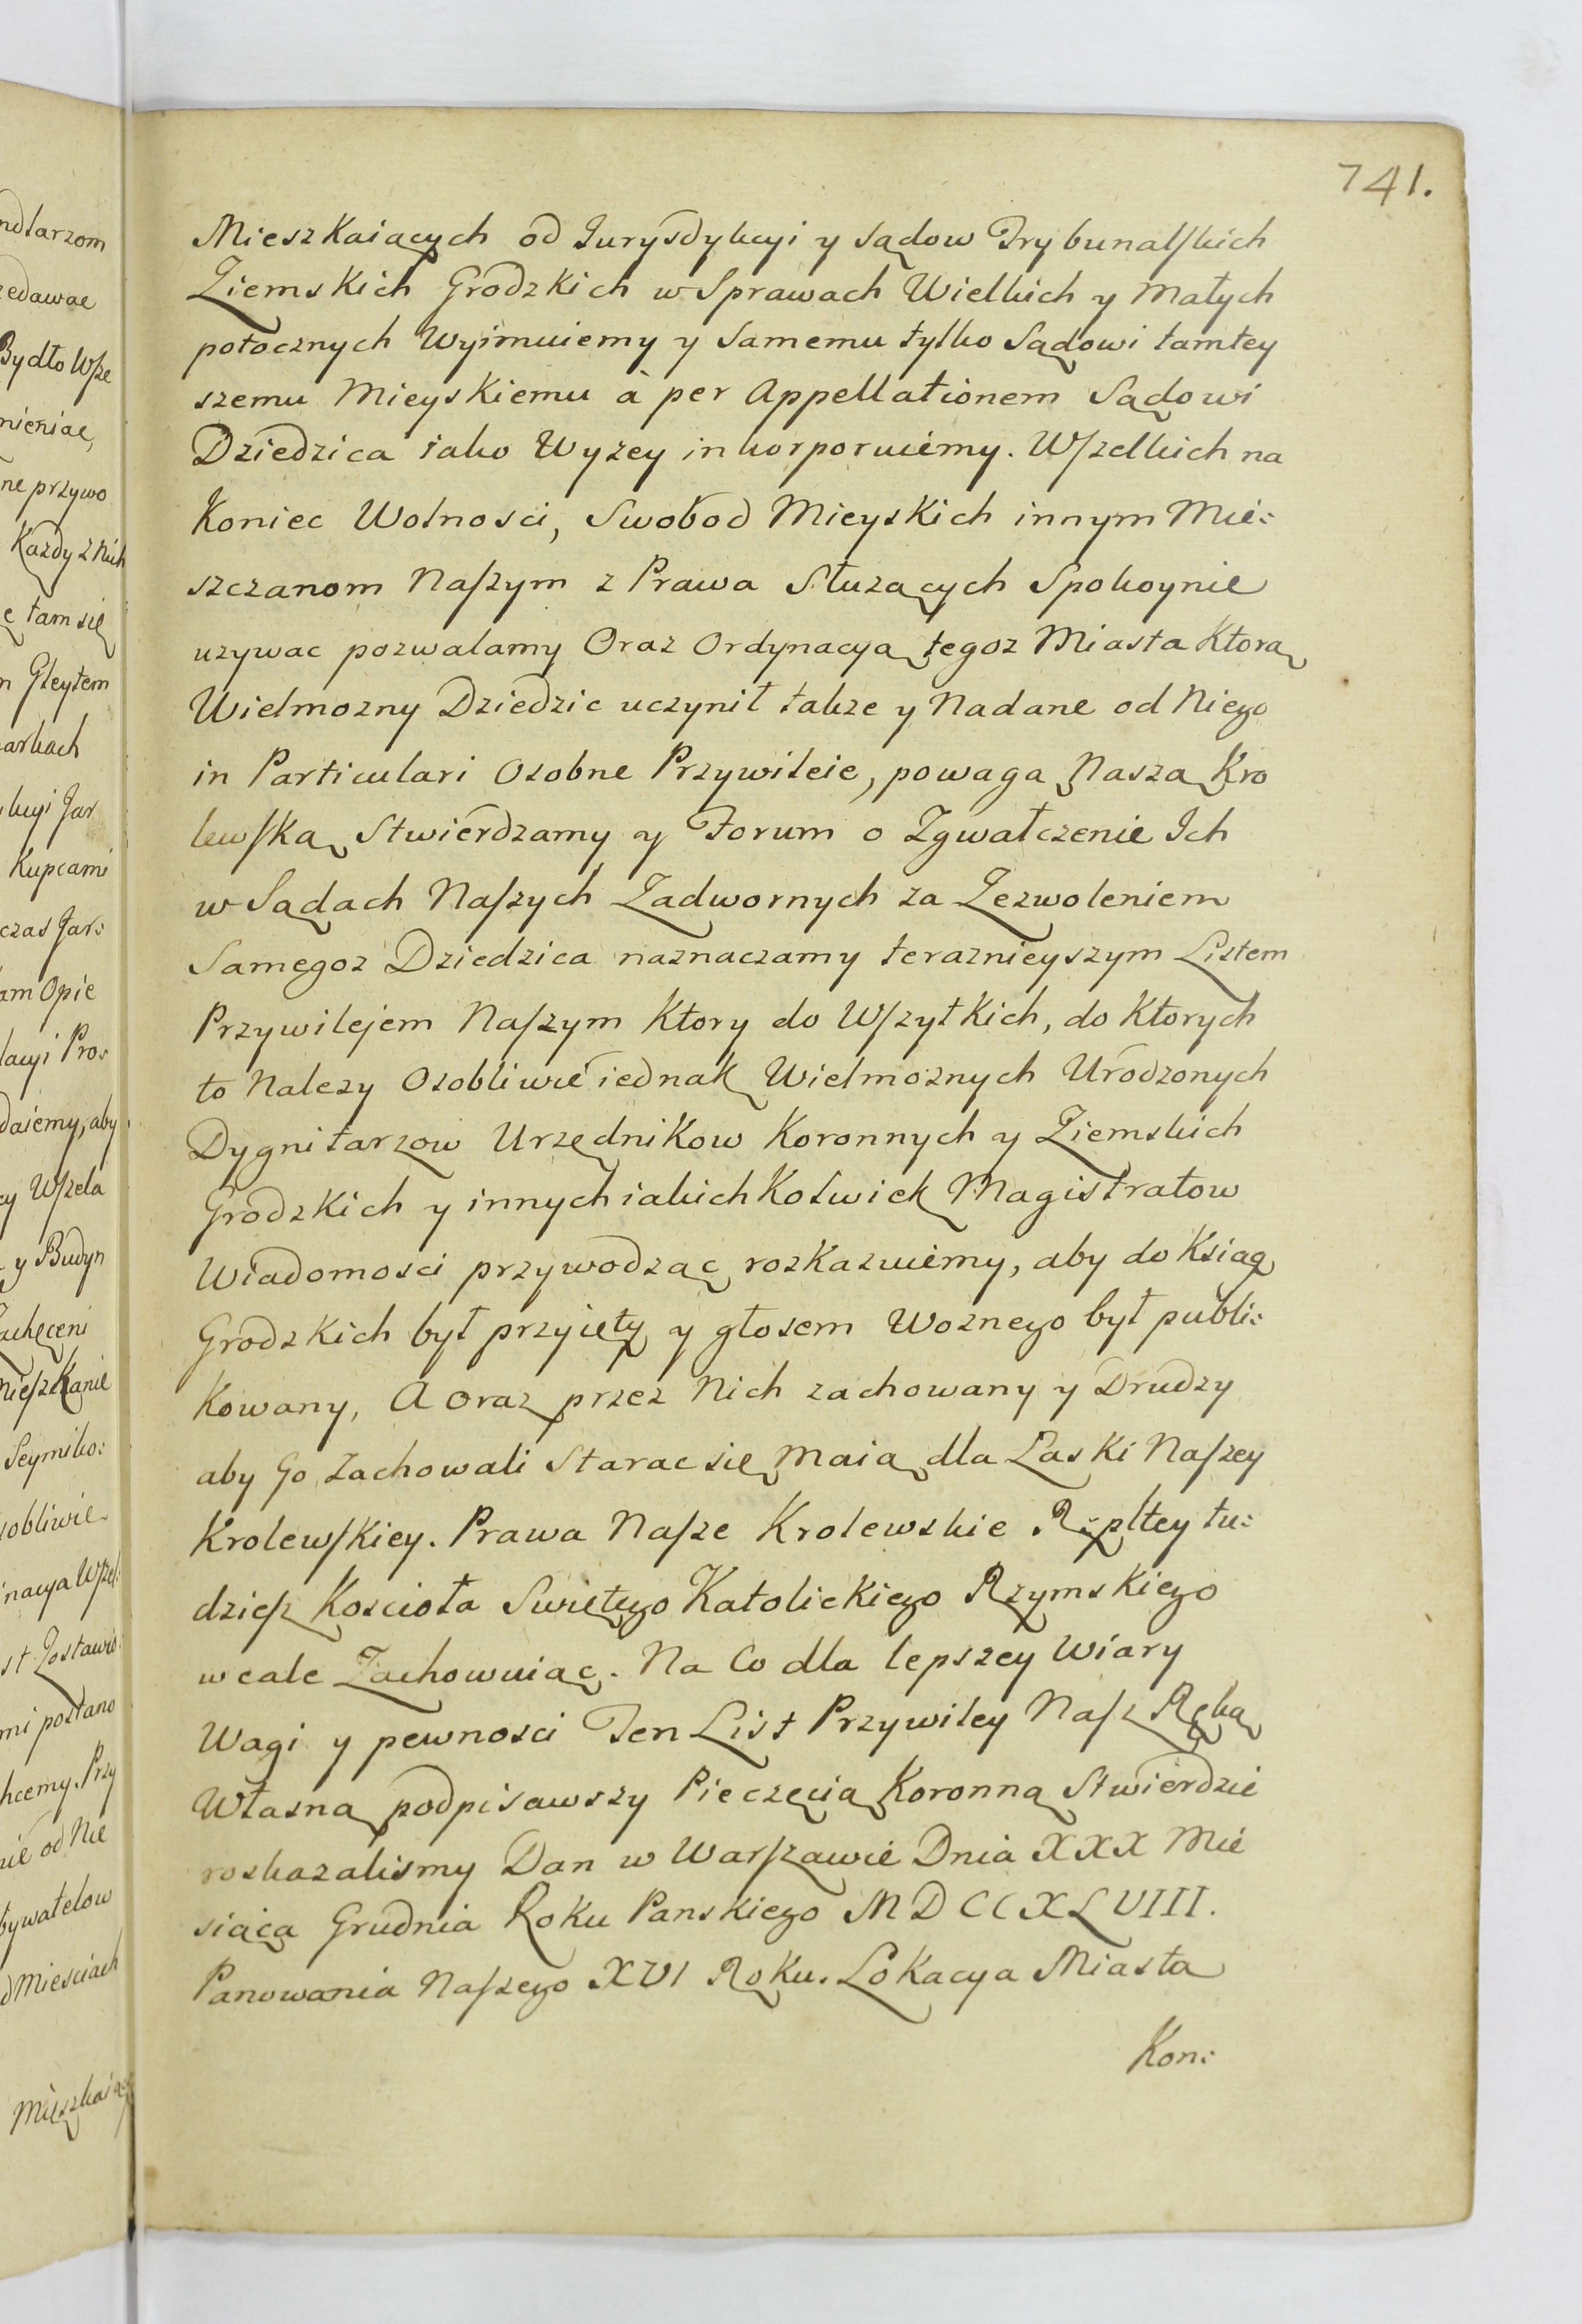 741.
ndlarzom
zedawac
Bydło Wſze
mieniac,
ne przywo
Każdy z Nich
ę tam się
m Gleytem
arkach
Kupcami
czas Jar:
am Opie
lacyi Pros
daiemy, aby
cy Wſzela
y Budyn
Zachęceni
mieſzkanie
Seymiko:
sobliwie
nacya Wſzel:
st Zostawio:
mi postano
hcemy. Przy
nie od Nie
bywatelow
d Miesciach
Mieszkaiąc
Mieszkaiących od Jurysdykcyi y sądow Trybunalſkich
Ziemskich Grodzkich w Sprawach Wielkich y Małych
potocznych Wyimuiemy y Samemu tylko Sądowi tamtey
szemu Mieyskiemu à per Appellationem Sądowi
Dziedzica iako Wyzey inkorporuiemy. Wſzelkich na
Koniec Wolnosci, Swobod Mieyskich innym Mie:
szczanom Naſzym z Prawa Służących Spokoynie
uzywac pozwalamy Oraz Ordynacyą tegoz Miasta Ktorą
Wielmozny Dziedzic uczynił takze y Nadane od Niego
in Particulari Osobne Przywileie, powagą Naszą Kro
lewſką Stwierdzamy y Forum o Zgwałczenie Ich
w Sądach Naſzych Zadwornych za Zezwoleniem
Samegoz Dziedzica naznaczamy teraznieyszym Listem
Przywilejem Naſzym Ktory do Wſzytkich, do Ktorych
to Nalezy Osobliwie iednak Wielmoznych Urodzonych
Dygnitarzow Urzędnikow Koronnych y Ziemskich
Grodzkich y innych iakich Kolwiek Magistratow
Wiadomosci przywodząc rozkazuiemy, aby do Ksiąg
Grodzkich był przyięty y głosem Woznego był publi:
Kowany, A oraz przez Nich zachowany y Drudzy
aby Go Zachowali Starac się Maią dla Łaski Naſzey
Krolewſkiey. Prawa Naſze Krolewskie R:pltey tu:
dzieſz Kosciota Swiętego Katolickiego Rzymskiego
wcale Zachowuiąc. Na Co dla lepszey Wiary
Wagi y pewnosci Ten List Przywiley Naſz Ręką
Własną podpisawszy Pieczęcią Koronną Stwierdzic
roskazalismy Dan w Warſzawie Dnia XXX Mie
siąca Grudnia Roku Panskiego MDCCXLVIII.
Panowania Naſzego XVI Roku. Lokacya Miasta
Kon: